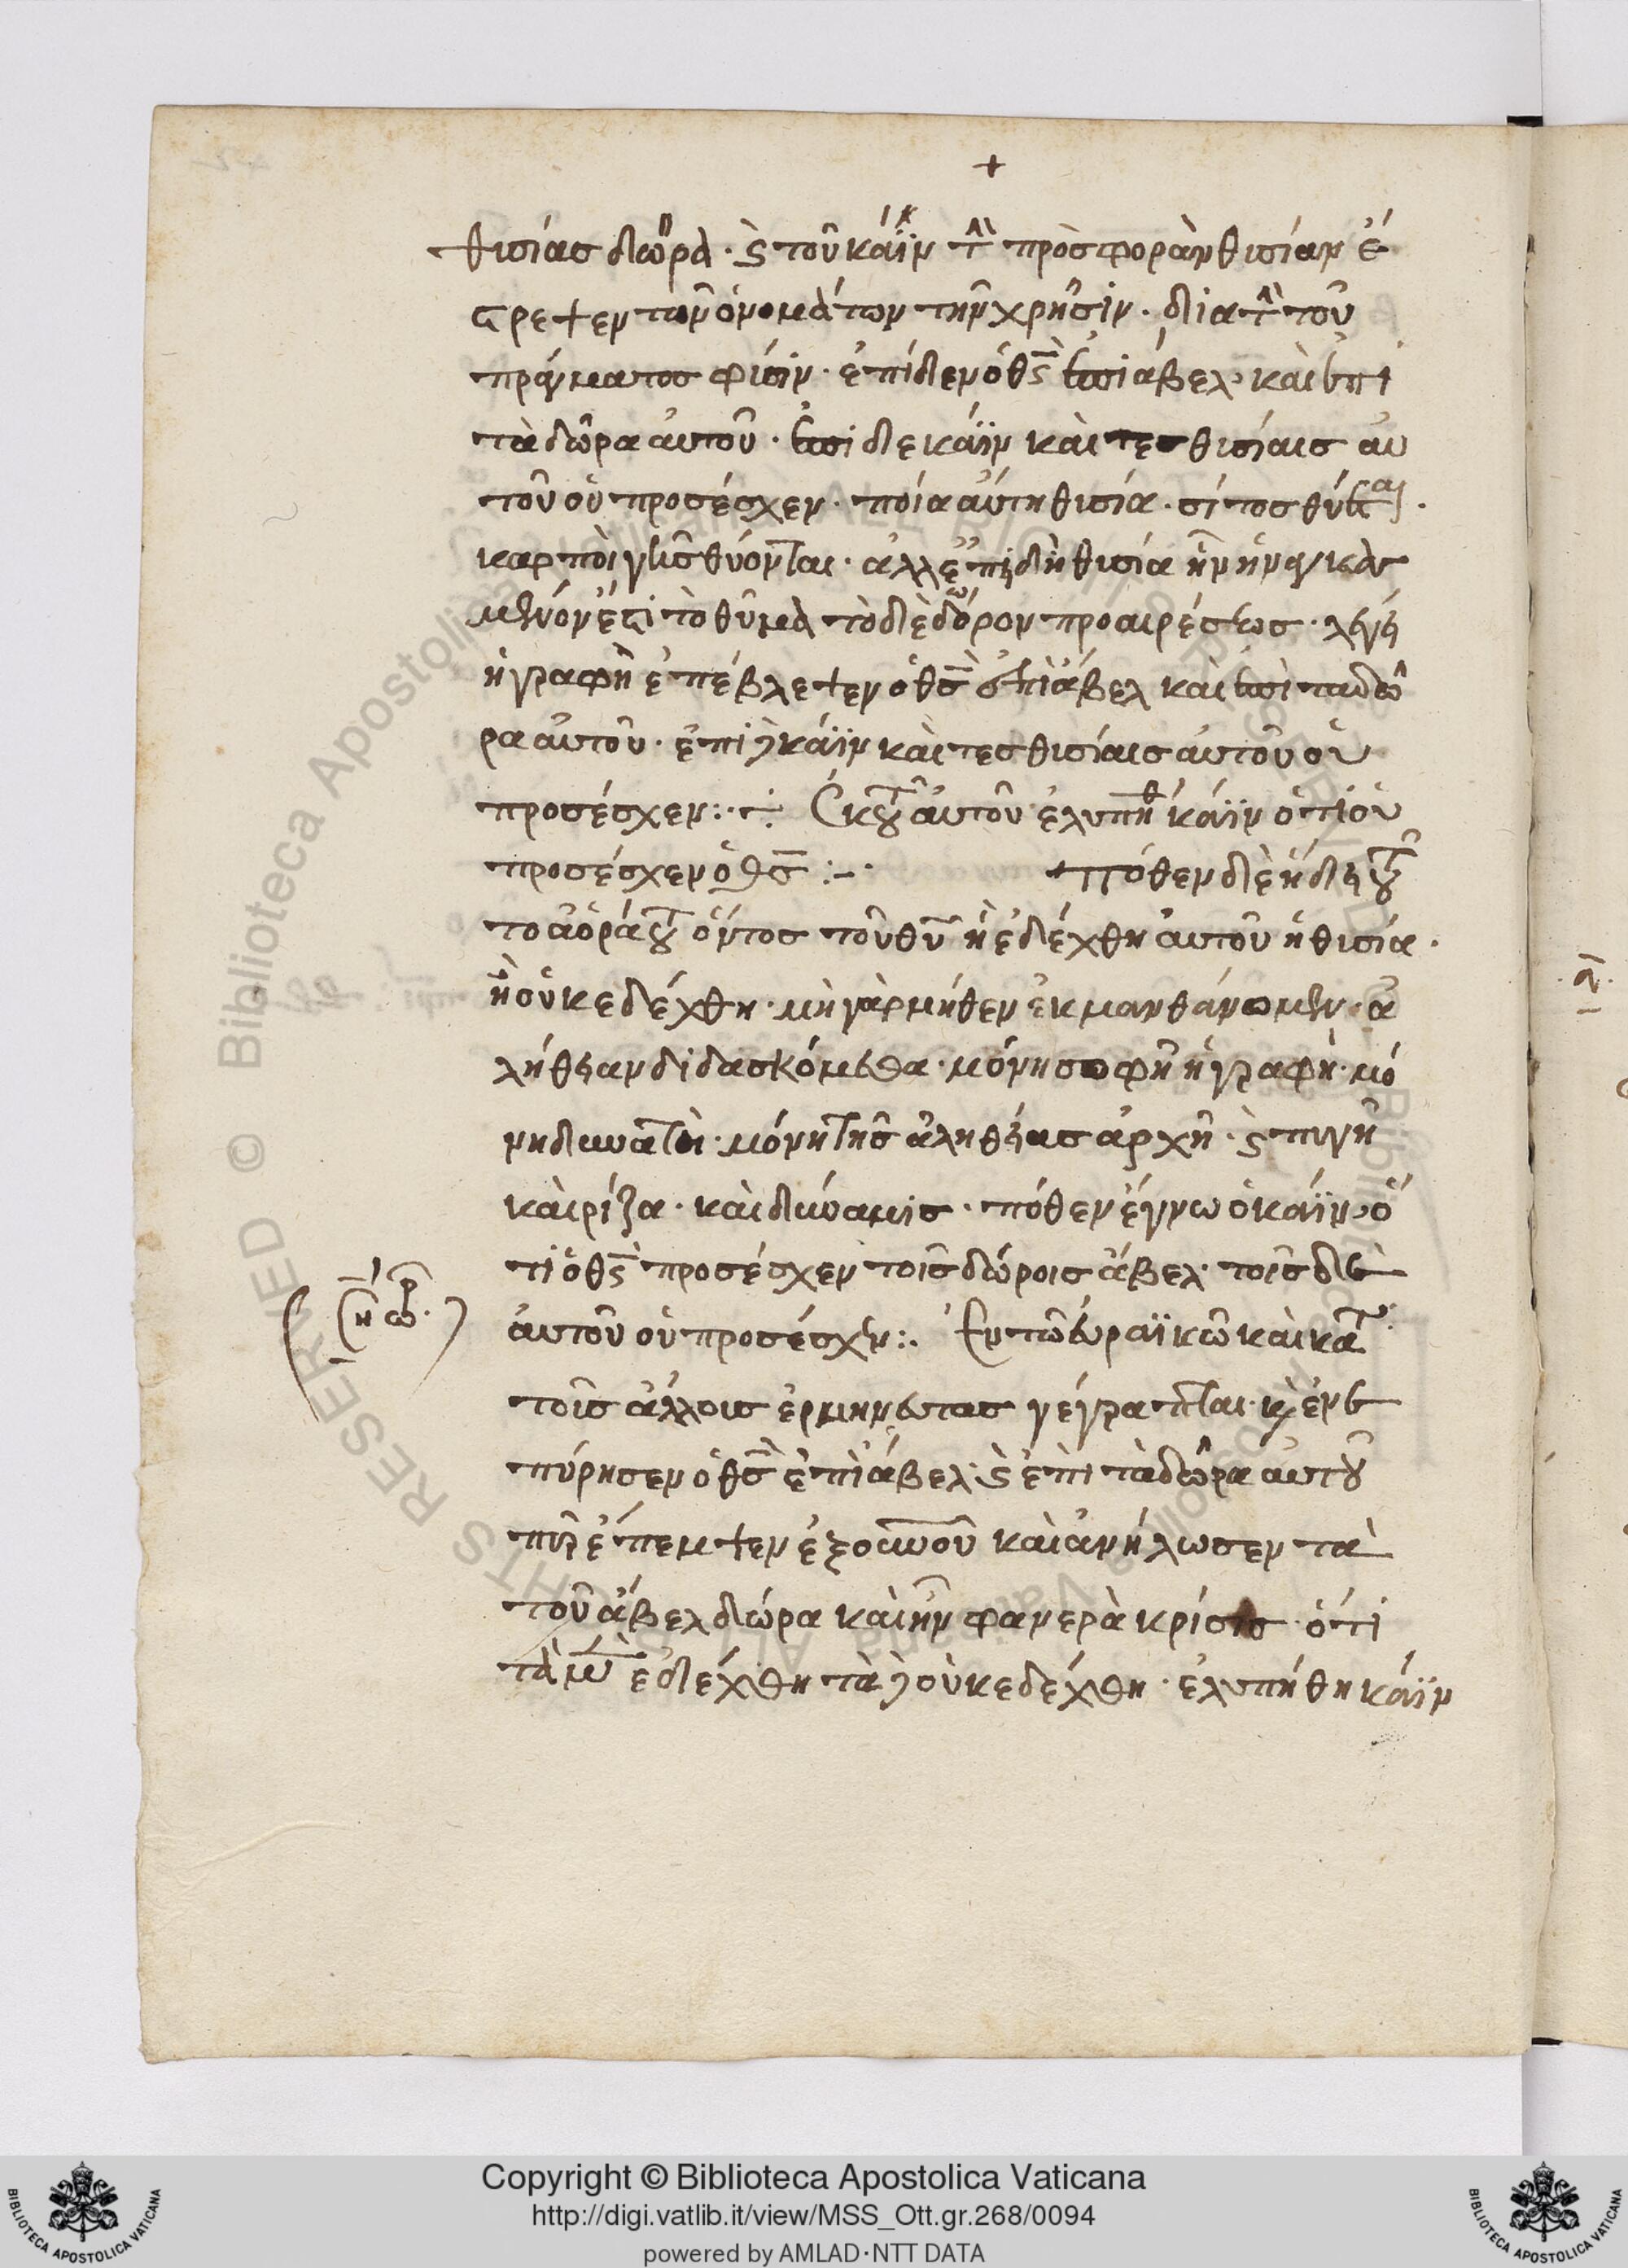 +
θυσίας δῶρα · καὶ τοῦ κάϊν τὴν πρὸσφορὰν θυσίαν ἔ
στρεψεν τῶν ὀνομάτων τὴν χρῆσιν · διὰ τὴν τοῦ
πράγματος φύσιν · ἐπίδεν ὁ θς ἐπὶ ἄβελ καὶ ἐπὶ
τὰ δῶρα αὐτοῦ · ἐπὶ δὲ κάϊν καὶ τες θυσίαις αυ
τοῦ οὐ προσέσχεν · ποία αὕτη θυσία · σίτος θύεται ·
καρποὶ γῆς θύονται · ἀλλ ἐπιδὴ θυσία ἦν
μενόν ἐστι τὸ θῦμα τὸ δὲ δῶρον προαιρέσεως · λέγει
ἡ γραφὴ ἐπέβλεψεν ὁ θς ἐπὶ ἄβελ καὶ ἐπὶ τα δῶ
ρα αὐτοῦ · ἐπὶ δὲ κάϊν καὶ τες θυσίαις αὐτοῦ οὐ
προσέσχεν :· ÷ Ἐκ τοῦ αὐτοῦ ἐλυπήθη κάϊν ὅτι οὐ
προσέσχεν ὁ θς :– · πόθεν δὲ ἤδει τοῦ
το ἀοράτου ὄντος τοῦ θυ ἢ ἐδέχθη αὐτοῦ ἡ θυσία ·
ἢ οὐκ εδέχθη · μὴ γὰρ μῦθον ἐκμανθάνωμεν · ἀ
λήθειαν διδασκόμεθα · μόνη σοφὴ ἡ γραφὴ · μό
νη δυνατὸι · μόνη τῆς ἀληθείας ἀρχὴ · καὶ πηγὴ
καὶ ρίζα · καὶ δύναμις · πόθεν ἔγνω ὁ κάϊν ὅ
τι ὁ θς προσέσχεν τοῖς δώροις ἄβελ · τοῖς δὲ
αὐτοῦ οὐ προσέσχεν :. Ἐν τῶ ἑβραϊκῶ καὶ κατὰ
τοῖς ἄλλοις ἑρμηνευτας γέγραπται · καὶ ἐνε
πύρησεν ὁ θς ἐπὶ ἄβελ · καὶ ἐπι τὰ δῶρα αὐτοῦ
πῦρ ἔπεμψεν ἐξ οὐνοῦ καὶ ἀνήλωσεν τὰ
τοῦ ἄβελ δώρα καὶ ἦν φανερὰ κρίσις · ὅτι
τὰ μὲν ἐδέχθη τὰ δὲ οὐκ εδέχθη · ἐλυπήθη κάϊν
Copyright © Biblioteca Apostolica Vaticana
http://digi.vatlib.it/view/MSS_Ott.gr.268/0094
powered by AMLAD·NTT DATA
BIBLIOTECA APOSTOLICA VATICANA
BIBLIOTECA APOSTOLICA VATICANA